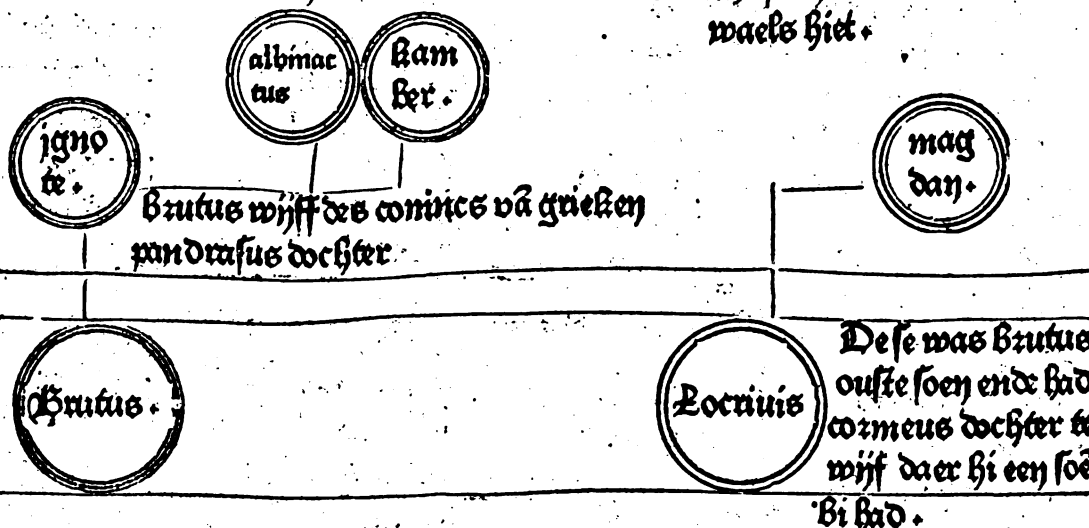 waels hiet.
albinac
tus
kam
ber.
igno
te.
mag
dan.
Brutus wijff des conincs vā grieken
pandrasus dochter
Brutus.
Locriuis
Dese was Brutus
ouste soen ende had
cormeus dochter te
wijf daer hi een soē
bi had.